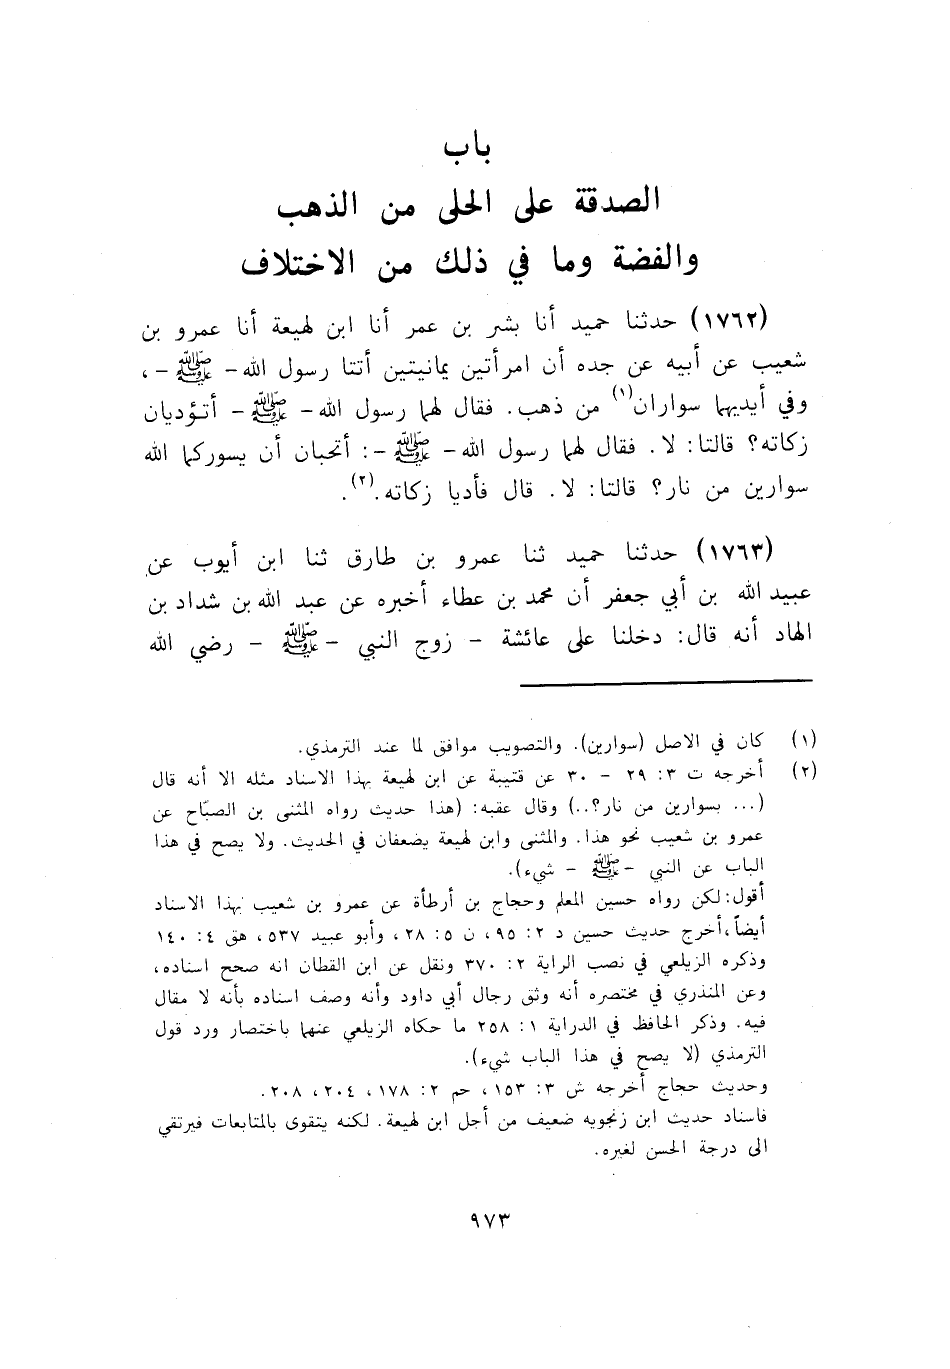 باب
الصدقة على الحلى من الذهب
والفضة وما في ذلك من الاختلاف
(١٧٦٢) حدثنا حميد أنا بشر بن عمر أنا ابن لهيعة أنا عمرو بن
شعيب عن أبيه عن جده أن امرأتين يمانيتين أتتا رسول الله - ﷺ -،
وفي أيديهما سواران(١) من ذهب. فقال لهما رسول الله - ﷺ - أتؤديان
زكاته؟ قالتا: لا. فقال لهما رسول الله - ﷺ -: أتحبان أن يسوركما الله
سوارين من نار؟ قالتا: لا. قال فأديا زكاته.(٢).
(١٧٦٣) حدثنا حميد ثنا عمرو بن طارق ثنا ابن أيوب عن
عبيد الله بن أبي جعفر أن محمد بن عطاء أخبره عن عبد الله بن شداد بن
الهاد أنه قال: دخلنا على عائشة - زوج النبي - ﷺ - رضي الله
(١) كان في الاصل (سوارين). والتصويب موافق لما عند الترمذي.
(٢) أخرجه ت ٣: ٢٩ - ٣٠ عن قتيبة عن ابن لهيعة بهذا الاسناد مثله الا أنه قال
(... بسوارين من نار؟..) وقال عقبه: (هذا حديث رواه المثنى بن الصبّاح عن
عمرو بن شعيب نحو هذا. والمثنى وابن لهيعة يضعفان في الحديث. ولا يصح في هذا
الباب عن النبي - ﷺ - شيء).
أقول: لكن رواه حسين المعلم وحجاج بن أرطأة عن عمرو بن شعيب بهذا الاسناد
أيضاً، أخرج حديث حسين د ٢: ٩٥، ن ٥: ٢٨، وأبو عبيد ٥٣٧، هق ٤: ١٤٠
وذكره الزيلعي في نصب الراية ٢: ٣٧٠ ونقل عن ابن القطان انه صحح اسناده،
وعن المنذري في مختصره أنه وثق رجال أبي داود وأنه وصف اسناده بأنه لا مقال
فيه. وذكر الحافظ في الدراية ١: ٢٥٨ ما حكاه الزيلعي عنهما باختصار ورد قول
الترمذي (لا يصح في هذا الباب شيء).
وحديث حجاج أخرجه ش ٣: ١٥٣، حم ٢: ١٧٨، ٢٠٤، ٢٠٨.
فاسناد حديث ابن زنجويه ضعيف من أجل ابن لهيعة. لكنه يتقوى بالمتابعات فيرتقي
الى درجة الحسن لغيره.
٩٧٣